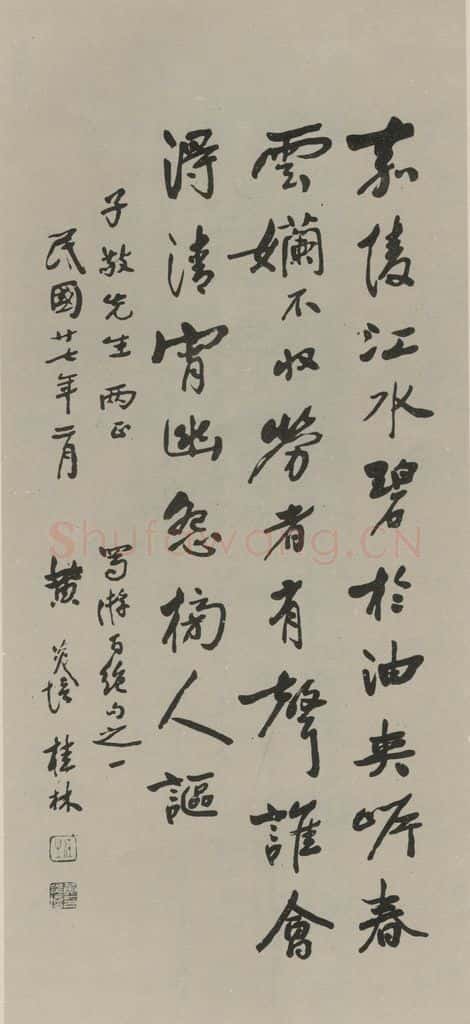 嘉陵江水碧於油夾岸春
雲孏不收勞者有聲誰會
得清宵幽怨榜人謳
子敬先生 兩正 蜀游百絕句之一
民國廿七年二月 黃炎培 桂林
Shufawang.CN